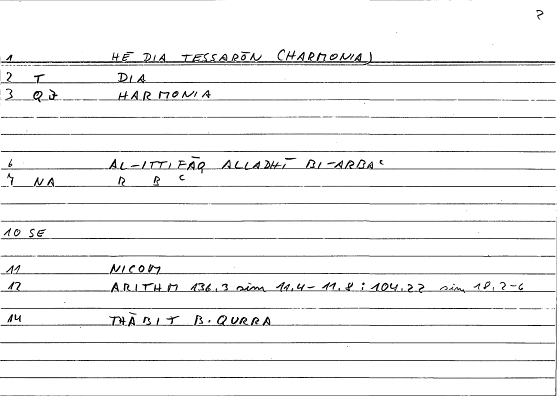 2
1 HĒ DIA TESSARŌN (HARMONIA)
2 T DIA
3 QJ HARMONIA
6 AL-ITTIFĀQ ALLADHĪ BI-ARBAᶜ
7 NA R B ᶜ
10 SE
11 NICOM
12 ARITHM 136.3 sim 11.4-11.8; 104.22 sim 18.2-6
14 THĀBIT B. QURRA